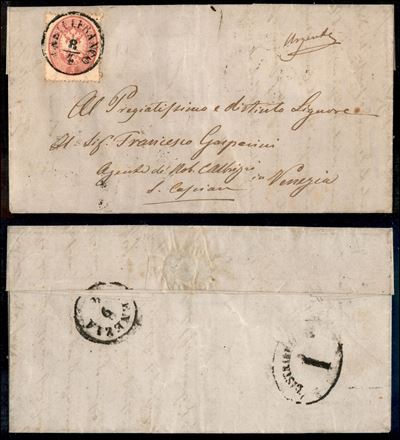 CASTELFRANCO
8/4
Urgente
Al Pregiatissimo e distinto Signore
Il Sig. Francesco Gasparini
Agente di Nob. CAlbrizzi
S. Cassian in Venezia
VENEZIA
9
DISTRIB
1